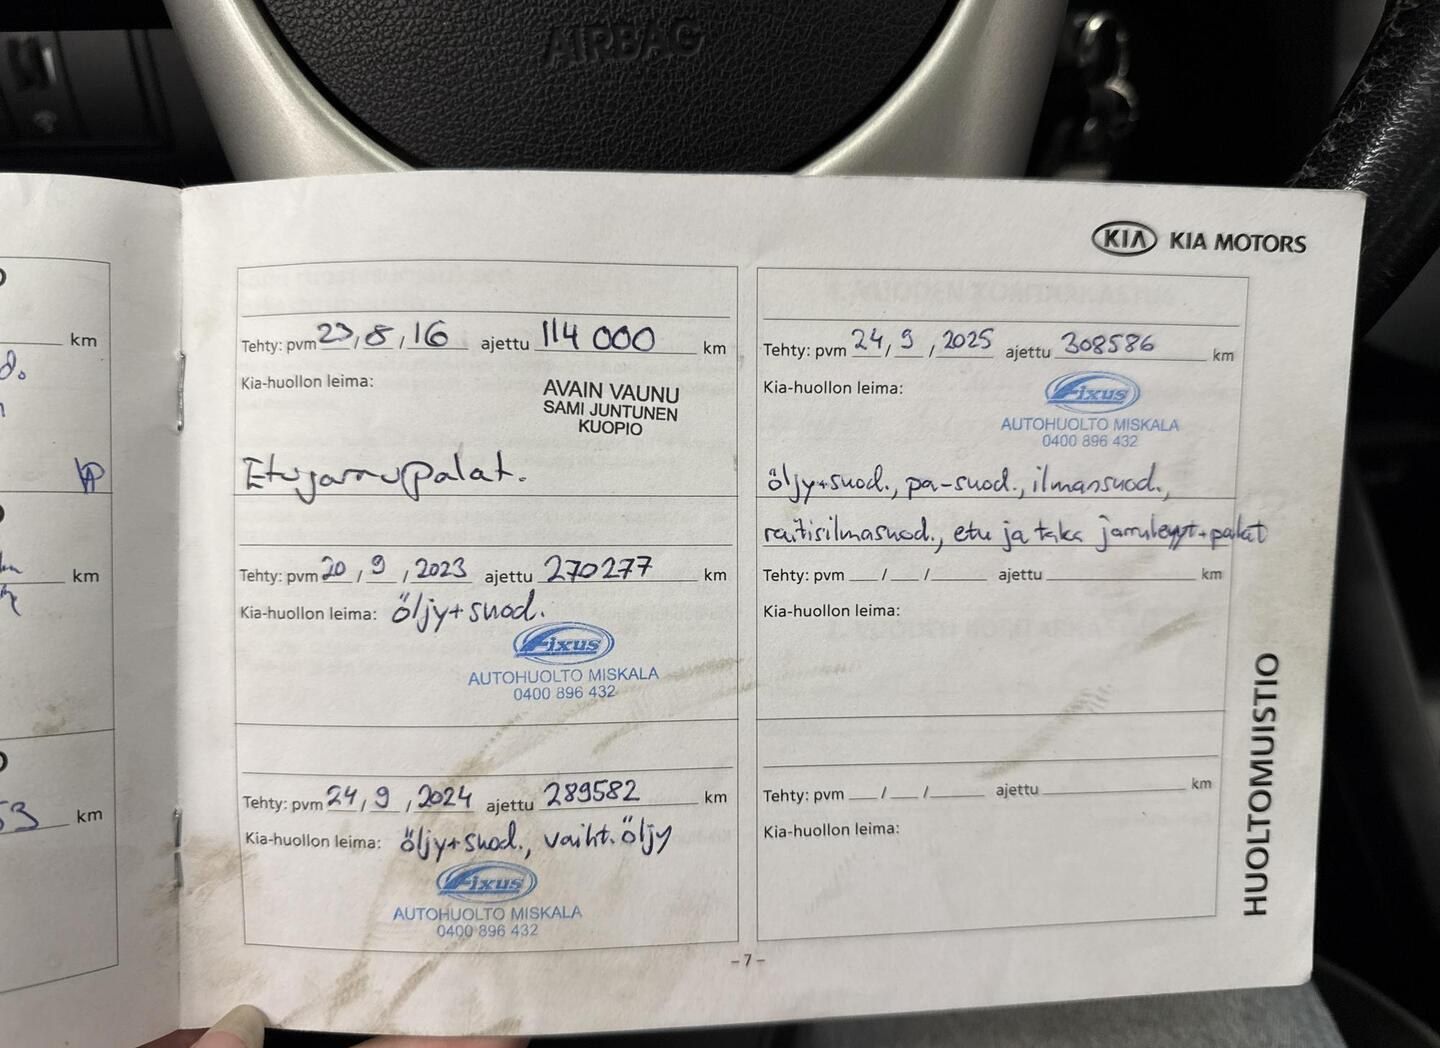 AIRBAG
KIA KIA MOTORS
km
km
53 km
Tehty: pvm 23, 8, 16 ajettu 114 000 km
Kia-huollon leima:
AVAIN VAUNU
SAMI JUNTUNEN
KUOPIO
Etujarrupalat.
Tehty: pvm 20, 9, 2023 ajettu 270277 km
Kia-huollon leima: öljy+suod.
Fixus
AUTOHUOLTO MISKALA
0400 896 432
Tehty: pvm 24, 9, 2024 ajettu 289582 km
Kia-huollon leima: öljy+suod., vaiht.öljy
Fixus
AUTOHUOLTO MISKALA
0400 896 432
Tehty: pvm 24/ 9 / 2025 ajettu 308586 km
Kia-huollon leima:
Fixus
AUTOHUOLTO MISKALA
0400 896 432
öljy+suod., pa-suod., ilmansuod.,
raitisilmasuod., etu ja taka jarrulevyt+palat
Tehty: pvm / / ajettu km
Kia-huollon leima:
Tehty: pvm / / ajettu km
Kia-huollon leima:
HUOLTOMUISTIO
- 7 -